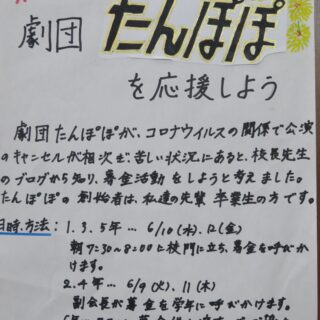 劇団 たんぽぽ
を応援しよう
劇団たんぽぽが、コロナウイルスの関係で公演
のキャンセルが相次ぎ、苦しい状況にあると、校長先生
のブログから知り、募金活動をしようと考えました。
たんぽぽの創始者は、私達の先輩 卒業生の方です。
日時、方法: 1.3.5年… 6/10(水)、12(金)
朝7:30~8:00に校門に立ち、募金を呼びか
けます。
2.4年… 6/9(火)、11(木)
副会長が募金を学年に呼びかけます。